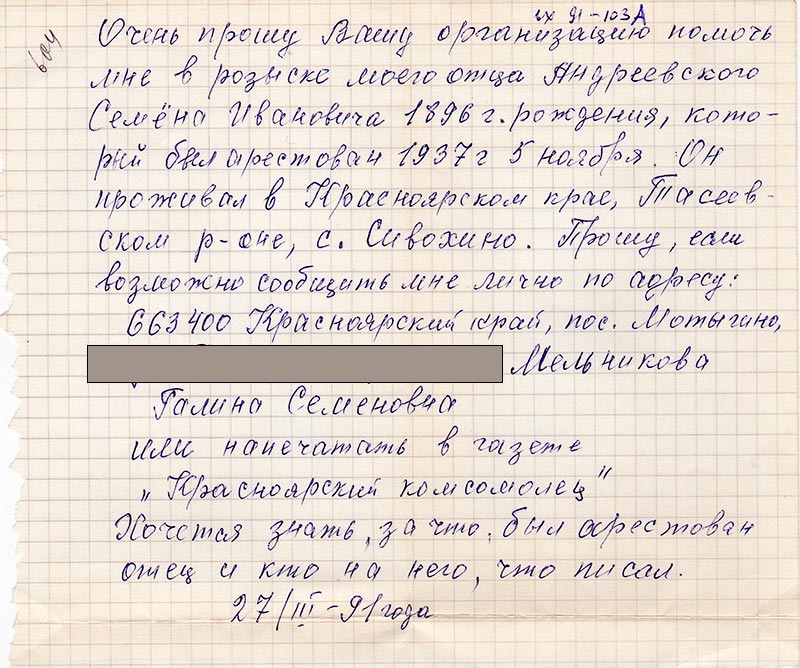 вх 91-103А
Очень прошу Вашу организацию помочь
мне в розыске моего отца Андреевского
Семёна Ивановича 1896 г. рождения, кото-
рый был арестован 1937 г 5 ноября. Он
проживал в Красноярском крае, Тасеев-
ском р-оне, с. Сивохино. Прошу, если
возможно сообщить мне лично по адресу:
663400 Красноярский край, пос. Мотыгино,
Мельникова
Галина Семеновна
или напечатать в газете
„Красноярский комсомолец"
Хочется знать, за что, был арестован
отец и кто на него, что писал.
27/III-91 года